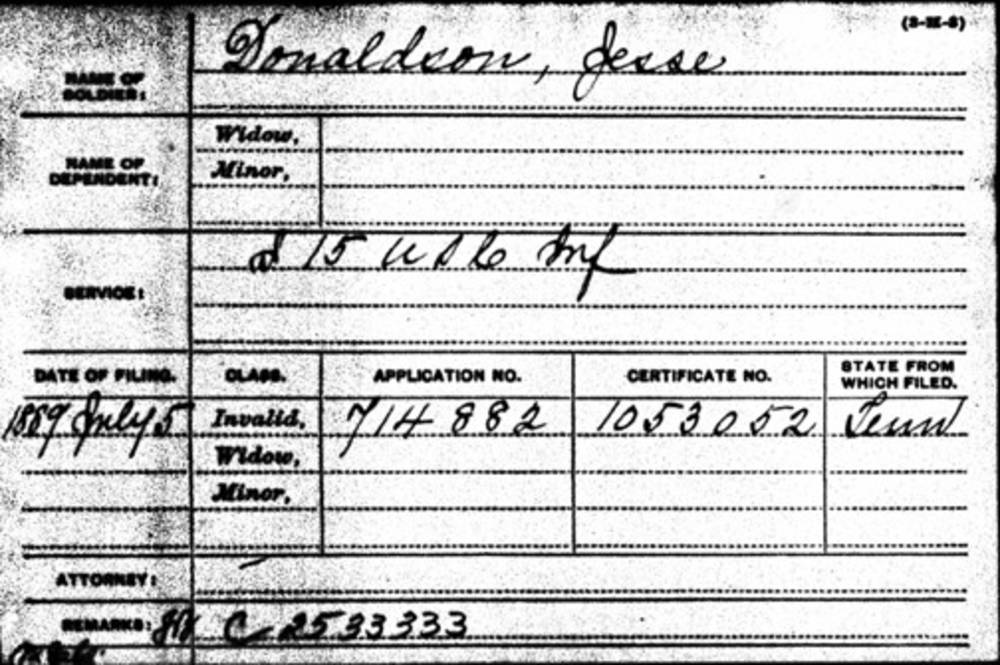 (3-IX-8)
NAME OF SOLDIER: Donaldson, Jesse
NAME OF DEPENDENT: Widow,
Minor,
SERVICE: I 15 U S C Inf
DATE OF FILING. CLASS. APPLICATION NO. CERTIFICATE NO. STATE FROM WHICH FILED.
1889 July 5 Invalid, 714 882 1053052 Tenn
Widow,
Minor,
ATTORNEY:
REMARKS: C 2533333